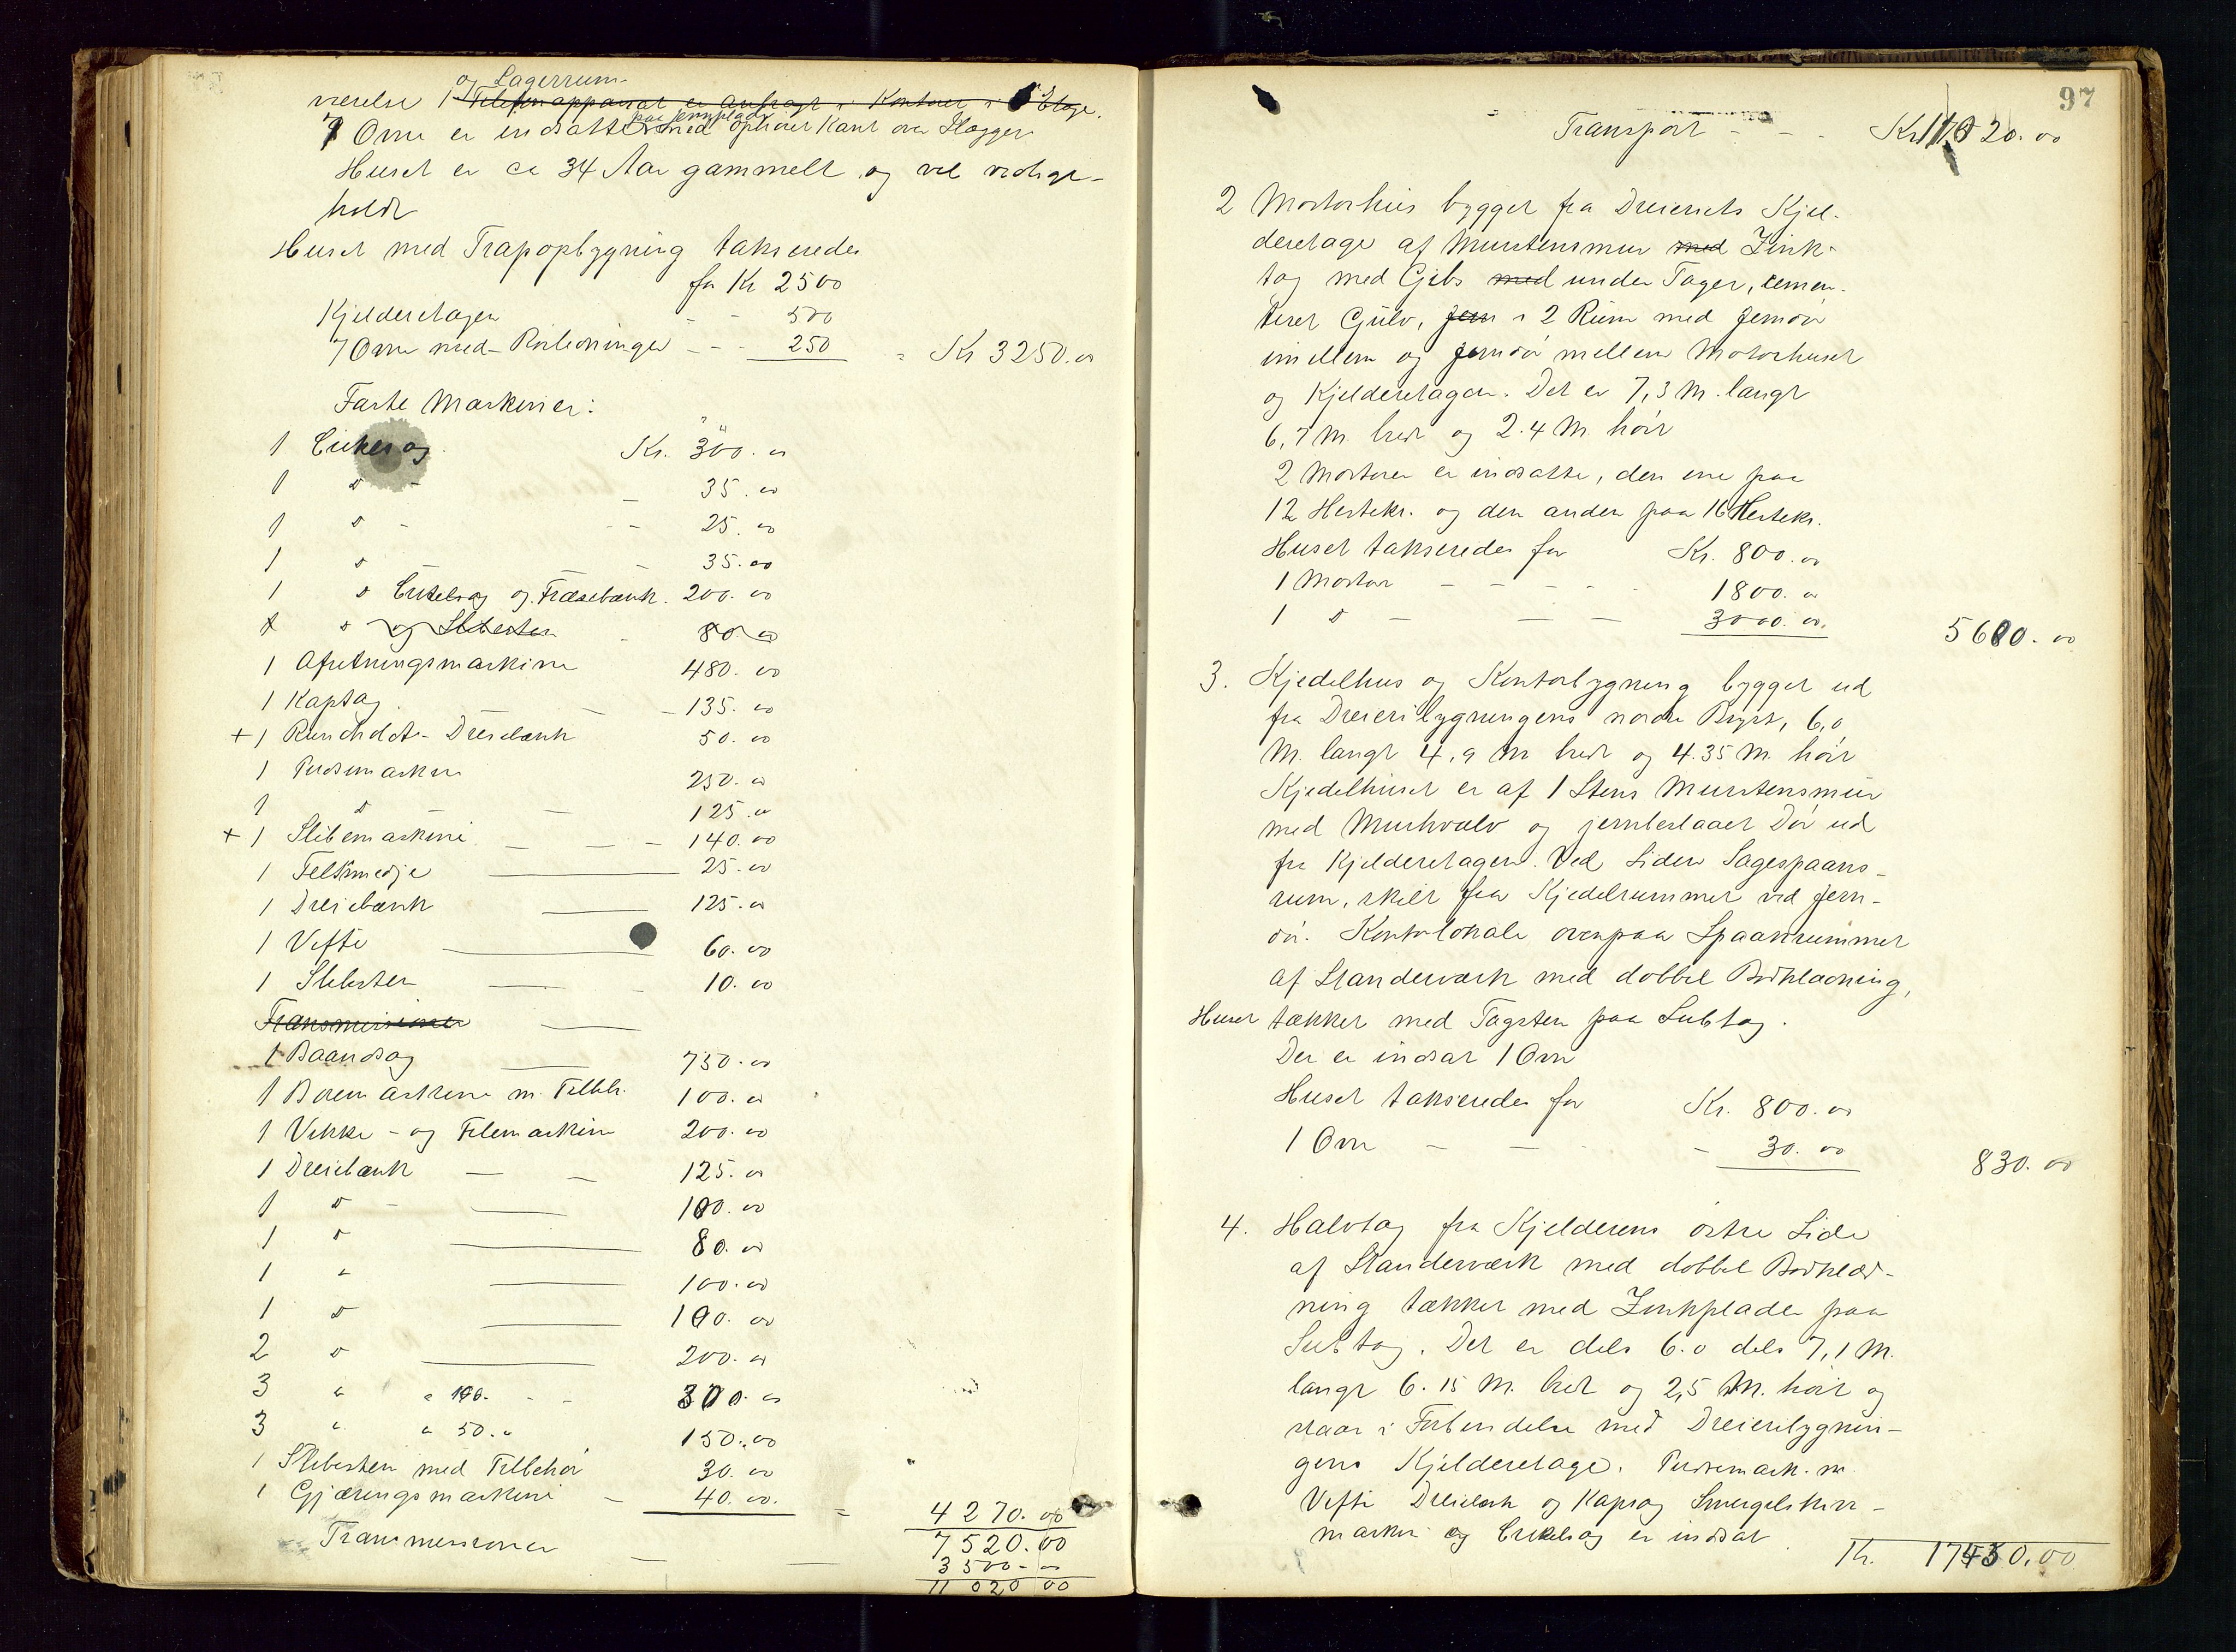 og Lagerrum
værelse 1 Telefonapparat er anbragt i Kontoret i Etage.
paa Jernplade
7 Ovne er indsatte med ophøiet Kant over Flagger
Huset er ca 34 Aar gammelt og vel vedlige-
holdt
Huset med Trapopbygning taksered­es
for Kr 2500
Kjelderetagen - - 500
7 Ovne med Rørledninger - - - 250 = Kr 3250.00
Faste Maskiner:
1 Cirkelsag Kr. 300.00
1 d - - 35.00
1 d - - - 25.00
1 d - 35.00
1 d Cirkelsag og Fræsebænk. 200.00
1 d og Slibesten - 80.00
1 Afretningsmaskine 480.00
1 Kapsag - - - 135.00
+ 1 Rundstok - Dreiebænk 50.00
1 Pudsemaskine 250.00
1 d - - 125.00
+ 1 Slibemaskine - - - 140.00
1 Feltsmedje 25.00
1 Dreiebænk 125.00
1 Vifte 60.00
1 Slibesten - 10.00
Transmissioner
1 Baandsag 750.00
1 Boremaskine m. Tilbh. 100.00
1 Vikke - og Filemaskine 200.00
1 Dreiebænk - - 125.00
1 d - 100.00
1 d 80.00
1 " 100.00
1 d 100.00
2 d 200.00
3 " a 100. - - 300.00
3 " a 50. " 150.00
1 Slibesten med Tilbehør 30.00
1 Gjæringsmaskine - 40.00. = 4270.00
7520.00
Transmissioner - - 3500-00
11 020 00
97
Transport - - - Kr 11020.00
2 Motorhus bygget fra Dreieriets Kjel-
deretage af Murstensmur med Zink-
tag med Gibs med under Taget, cemen-
teret Gulv, Jern i 2 Rum med Jerndør
imellem og Jerndør mellem Motorhuset
og Kjelderetagen. Det er 7,3 M. langt
6,7 M. bredt og 2.4 M. høit
2 Motorer er indsatte, den ene paa
12 Hestekr. og den anden paa 16 Hestekr.
Huset takseredes for Kr. 800.00
1 Motor - - - - - 1800.00
1 d - - - 3000.00. 5600.00
3. Kjedelhus og Kontorbygning bygget ud
fra Dreieribygningens nordre Bryst, 6,0
M. langt 4,9 M bredt og 4.35 M. høit
Kjedelhuset er af 1 Stens Murstensmur
med Murhvælv og jernbeslaaet Dør ud
fra Kjelderetagen. Ved Siden Sagespaans-
rum, skilt fra Kjedelrummet ved Jern-
dør. Kontorlokale ovenpaa Spaanrummet
af Standerværk med dobbel Bordklædning,
Huset tækket med Tagsten paa Sutag.
Der er indsat 1 Ovn
Huset takseredes for Kr. 800.00
1 Ovn - - - 30.00 830.00
4. Halvtag fra Kjelderens østre Side
af Standerværk med dobbel Bordklæd-
ning tækket med Zinkplader paa
Sutag. Det er dels 6.0 dels 7,1 M.
langt 6.15 M. bredt og 2,5 M. høit og
staar i Forbindelse med Dreieribygnin-
gens Kjelderetage. Pudsemask. m.
Vifte Dreiebænk og Kapsag Smergelskive-
maskin og Cirkelsag er indsat
Kr. 17450,00